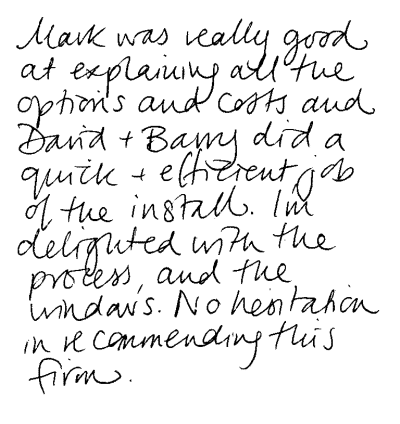 Mark was really good
at explaining all the
options and costs and
David + Barry did a
quick + efficient job
of the install. I'm
delighted with the
process, and the
windows. No hesitation
in recommending this
firm.